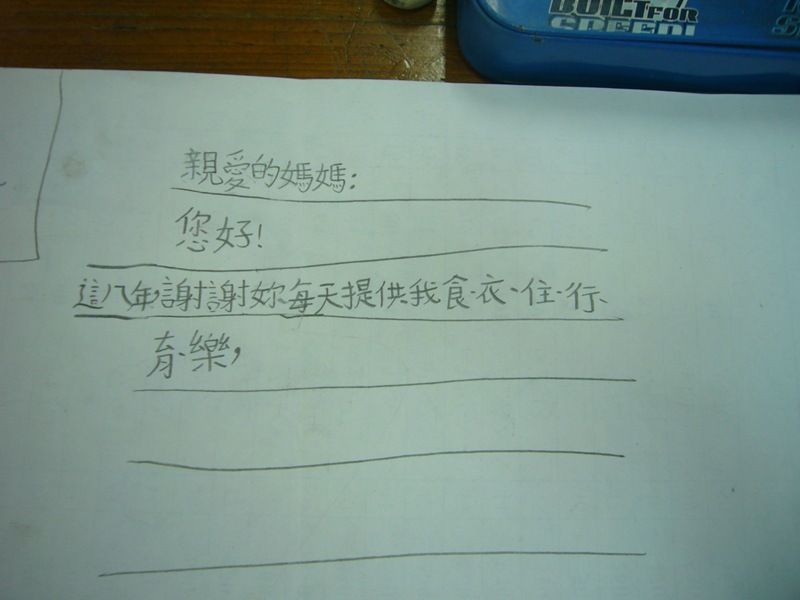 BUILT FOR
SPEED!
親愛的媽媽:
您好!
這八年謝謝妳每天提供我食、衣、住、行、
育、樂,